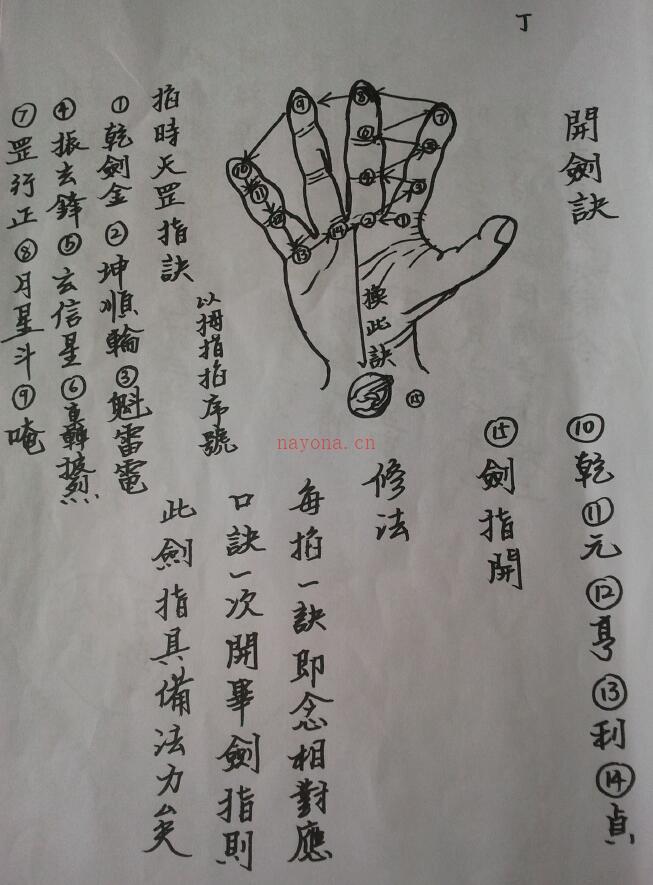 丁
開劍訣
⑨
⑧
⑦
⑩
⑥
⑪
④
⑫
②
①
⑭
⑬
換此訣
⑮
掐時天罡指訣
以拇指掐序號
①乾劍金②坤順輪③魁雷電
④振玄鋒⑤玄信星⑥轉
⑦罡行正⑧月星斗⑨唵
⑩乾⑪元⑫亨⑬利⑭貞
⑮劍指開
修法
每掐一訣即念相對應
口訣一次開畢劍指則
此劍指具備法力矣
nayona.cn